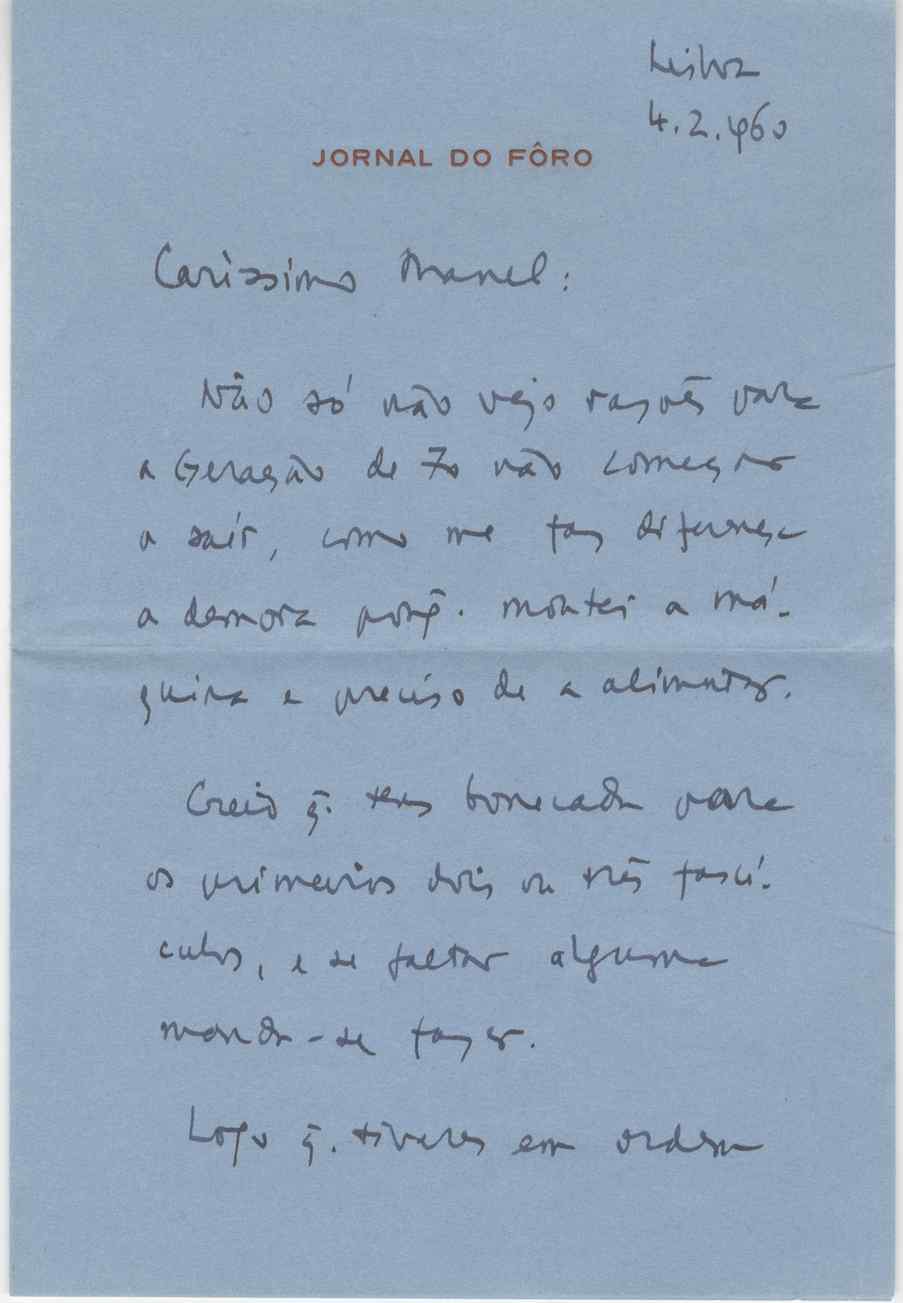 Lisboa
4.2.960
JORNAL DO FÔRO
Caríssimo Manel:
Não só não vejo razões para
a Geração de 70 não começar
a sair, como me faz diferença
a demora porq̃. montei a má-
quina e preciso de a alimentar.
Creio q̃. tens bonecada para
os primeiros dois ou três fascí-
culos, e se faltar alguma
manda-se fazer.
Logo q̃. tiveres em ordem